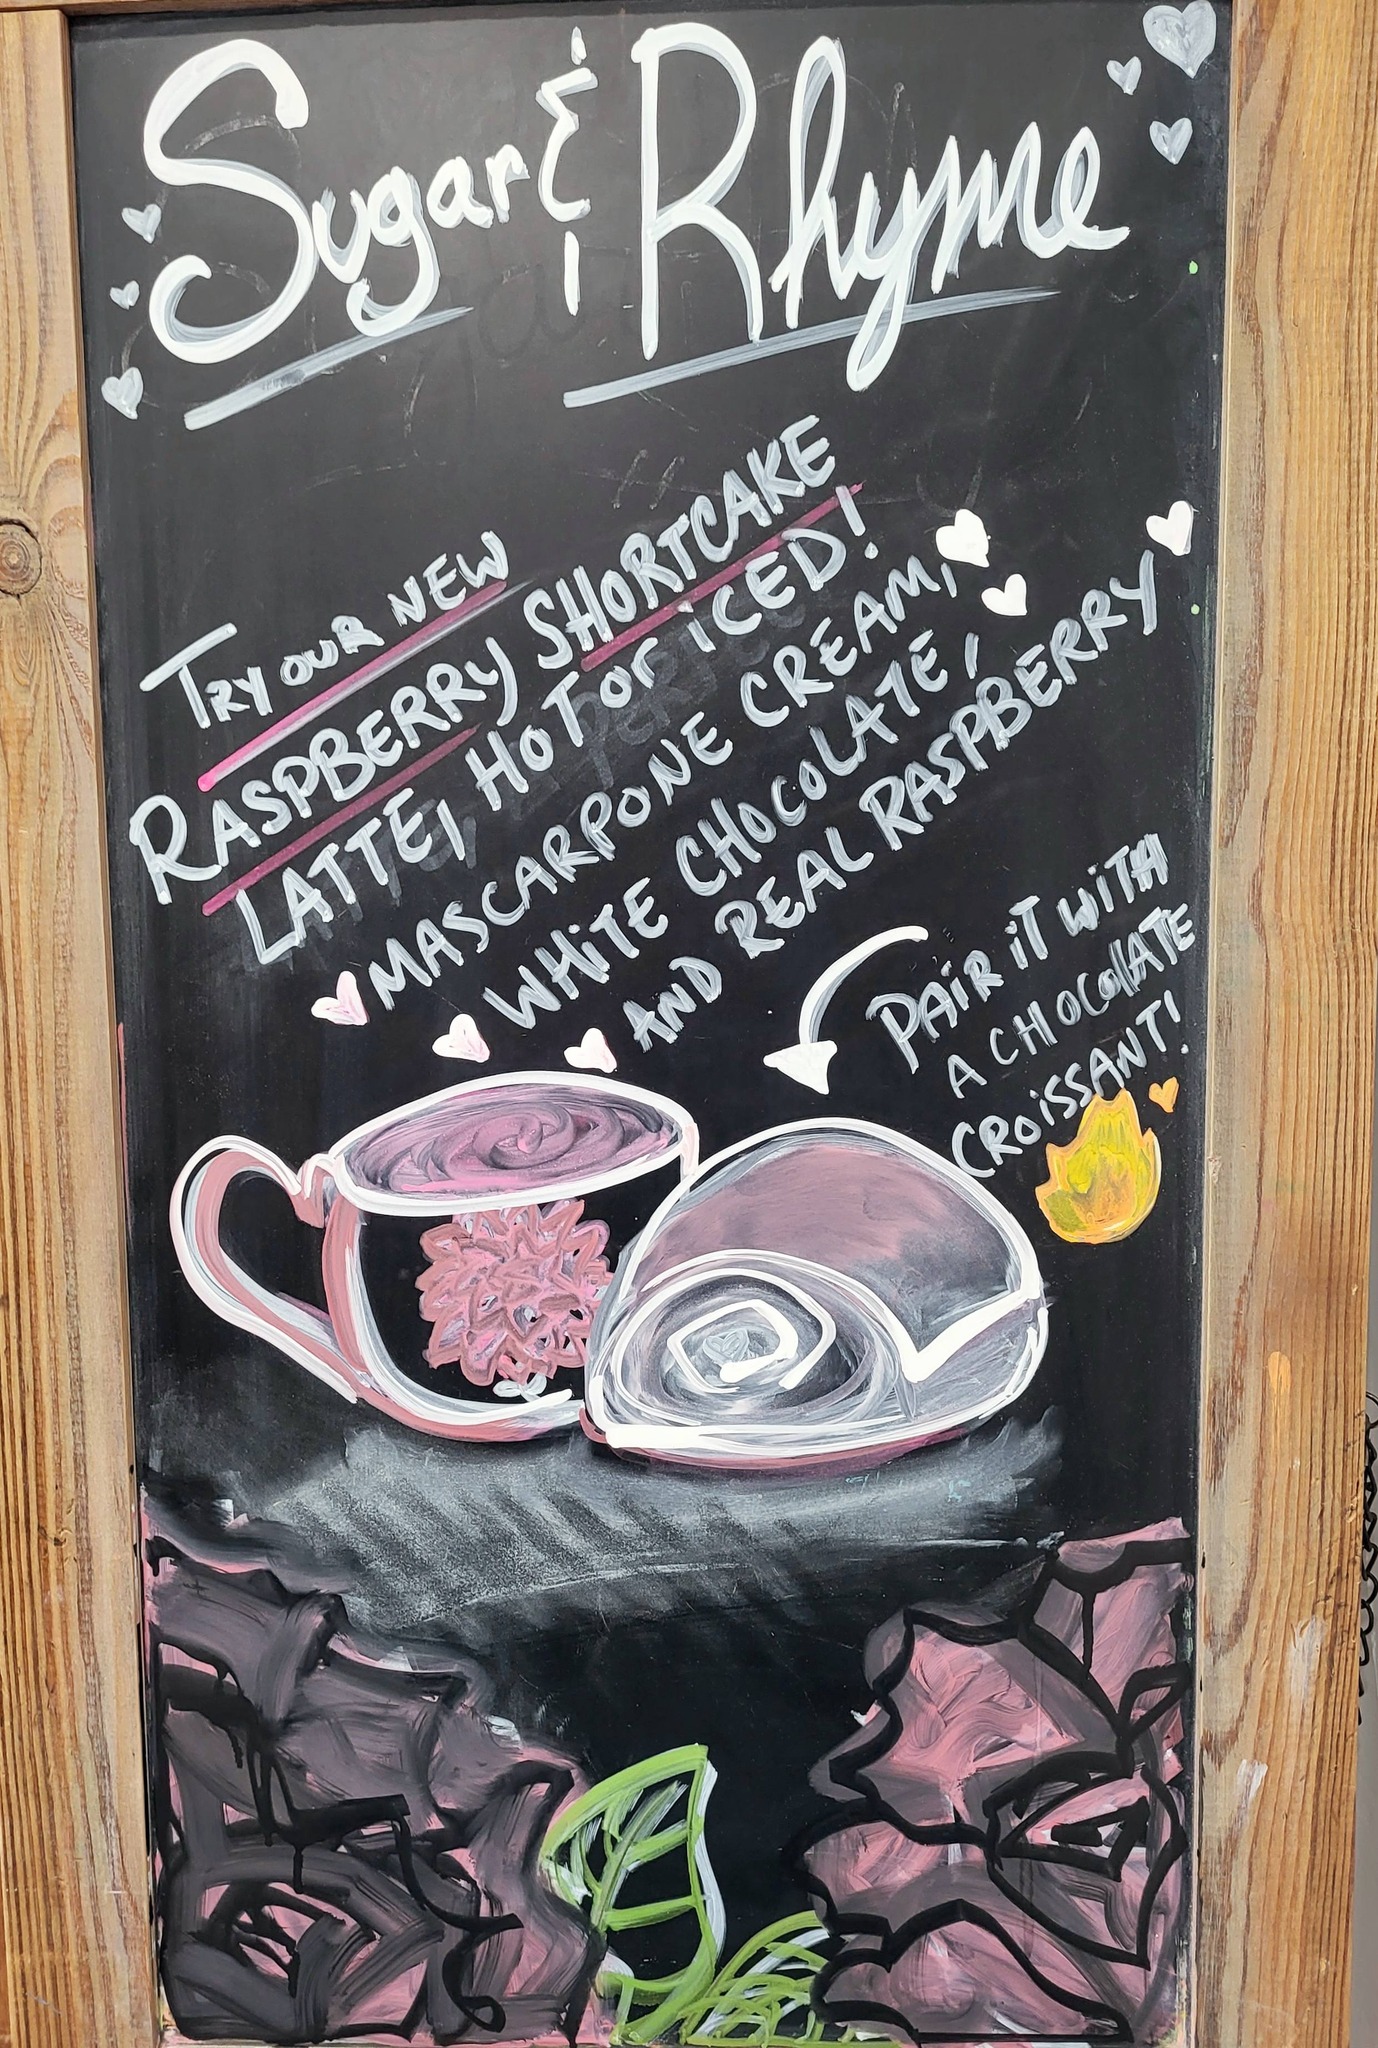 Sugar & Rhyme
TRY OUR NEW
RASPBERRY SHORTCAKE
LATTE, HOT or iCED!
MASCARPONE CREAM,
WHiTE CHOCOLATE,
AND REAL RASPBERRY
PAiR iT WiTH
A CHOCOlATE
CROiSSANT!